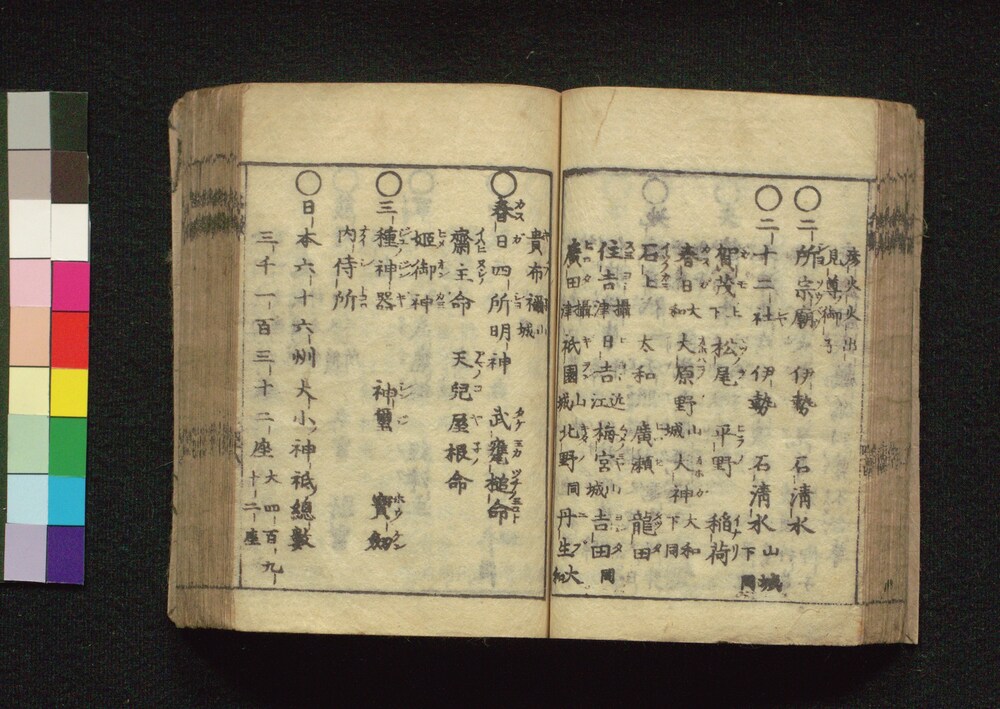 彦火火出
見尊御子
〇二所宗廟 伊勢 石清水
〇二十二社 伊勢 石清水 山城
賀茂 上下 松尾 平野 稲荷 下同
春日 大和 大原野 山城 大神 大和 下同
石上 大和 廣瀬 龍田
住吉 攝津 日吉 近江 梅宮 山城 吉田 同
廣田 攝津 祇園 山城 北野 同 丹生 大和
貴布禰 山城
〇春日四所明神 武甕槌命
齋主命 天兒屋根命
姫御神
〇三種神器 神璽 寳劔
内侍所
〇日本六十六州大小神祇總數
三千一百三十二座 大四百九十二座